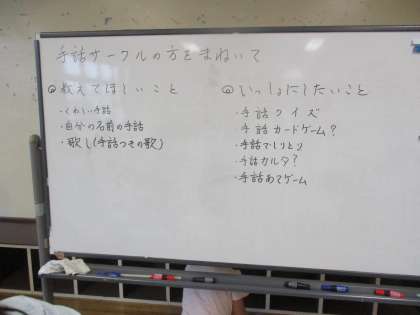 手話サークルの方をまねいて
◎教えてほしいこと
・くわしい手話
・自分の名前の手話
・歌し(手話つきの歌)
◎いっしょにしたいこと
・手話クイズ
・手話カードゲーム?
・手話でしりとり
・手話カルタ?
・手話あてゲーム